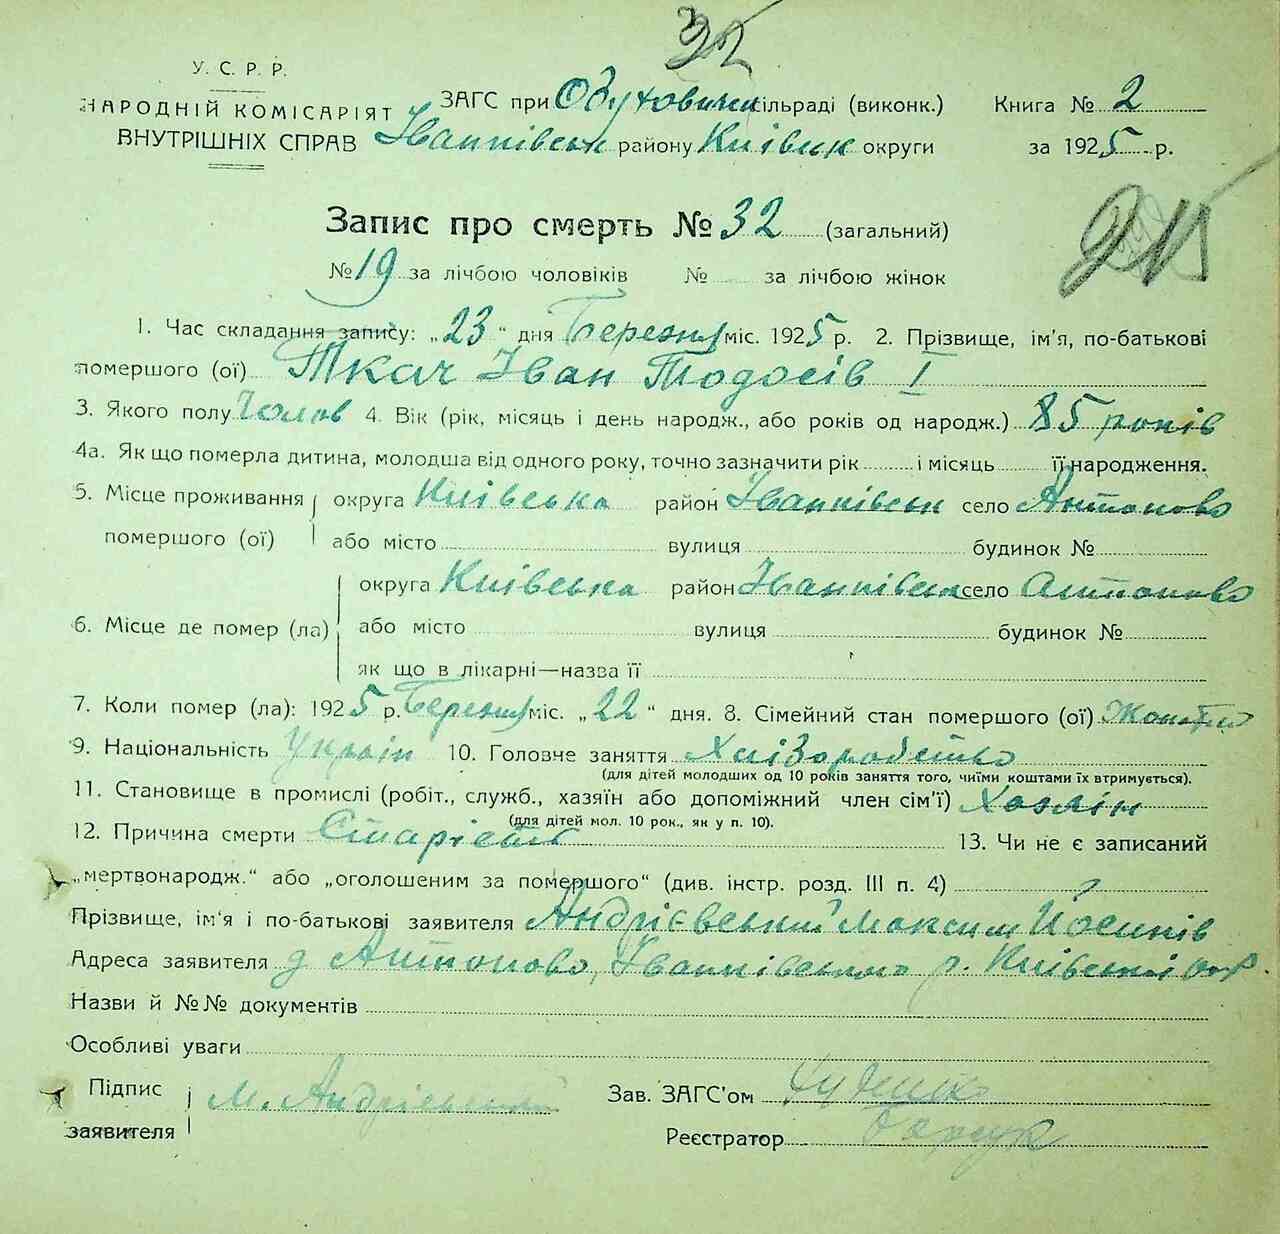 32
У. С. Р. Р.
НАРОДНІЙ КОМІСАРІЯТ
ВНУТРІШНІХ СПРАВ
ЗАГС при Обуховичи сільраді (виконк.) Книга № 2
Іванківськ району Київськ округи за 1925 р.
Запис про смерть № 32 (загальний)
№ 19 за лічбою чоловіків № за лічбою жінок
1. Час складання запису: „23“ дня Березня міс. 1925 р. 2. Прізвище, ім'я, по-батькові
помершого (ої) Ткач Іван Тодосів I
3. Якого полу Чолов 4. Вік (рік, місяць і день народж., або років од народж.) 85 років
4а. Як що померла дитина, молодша від одного року, точно зазначити рік і місяць її народження.
5. Місце проживання округа Київська район Іванківськ село Антоново
помершого (ої) або місто вулиця будинок №
округа Київська район Іванківськ село Антоново
6. Місце де помер (ла) або місто вулиця будинок №
як що в лікарні—назва її
7. Коли помер (ла): 1925 р. Березня міс. „22“ дня. 8. Сімейний стан помершого (ої) Жонатий
9. Національність Україн 10. Головне заняття Хліборобство
(для дітей молодших од 10 років заняття того, чиїми коштами їх втримується).
11. Становище в промислі (робіт., служб., хазяїн або допоміжний член сім'ї) Хозяїн
(для дітей мол. 10 рок., як у п. 10).
12. Причина смерти Старість 13. Чи не є записаний
„мертвонародж.“ або „оголошеним за помершого“ (див. інстр. розд. III п. 4)
Прізвище, ім'я і по-батькові заявителя Андрієвський Максим Йосипів
Адреса заявителя д Антоново, Іванківського р. Київської окр.
Назви й №№ документів
Особливі уваги
Підпис М. Андрієвський Зав. ЗАГС'ом
заявителя Реєстратор